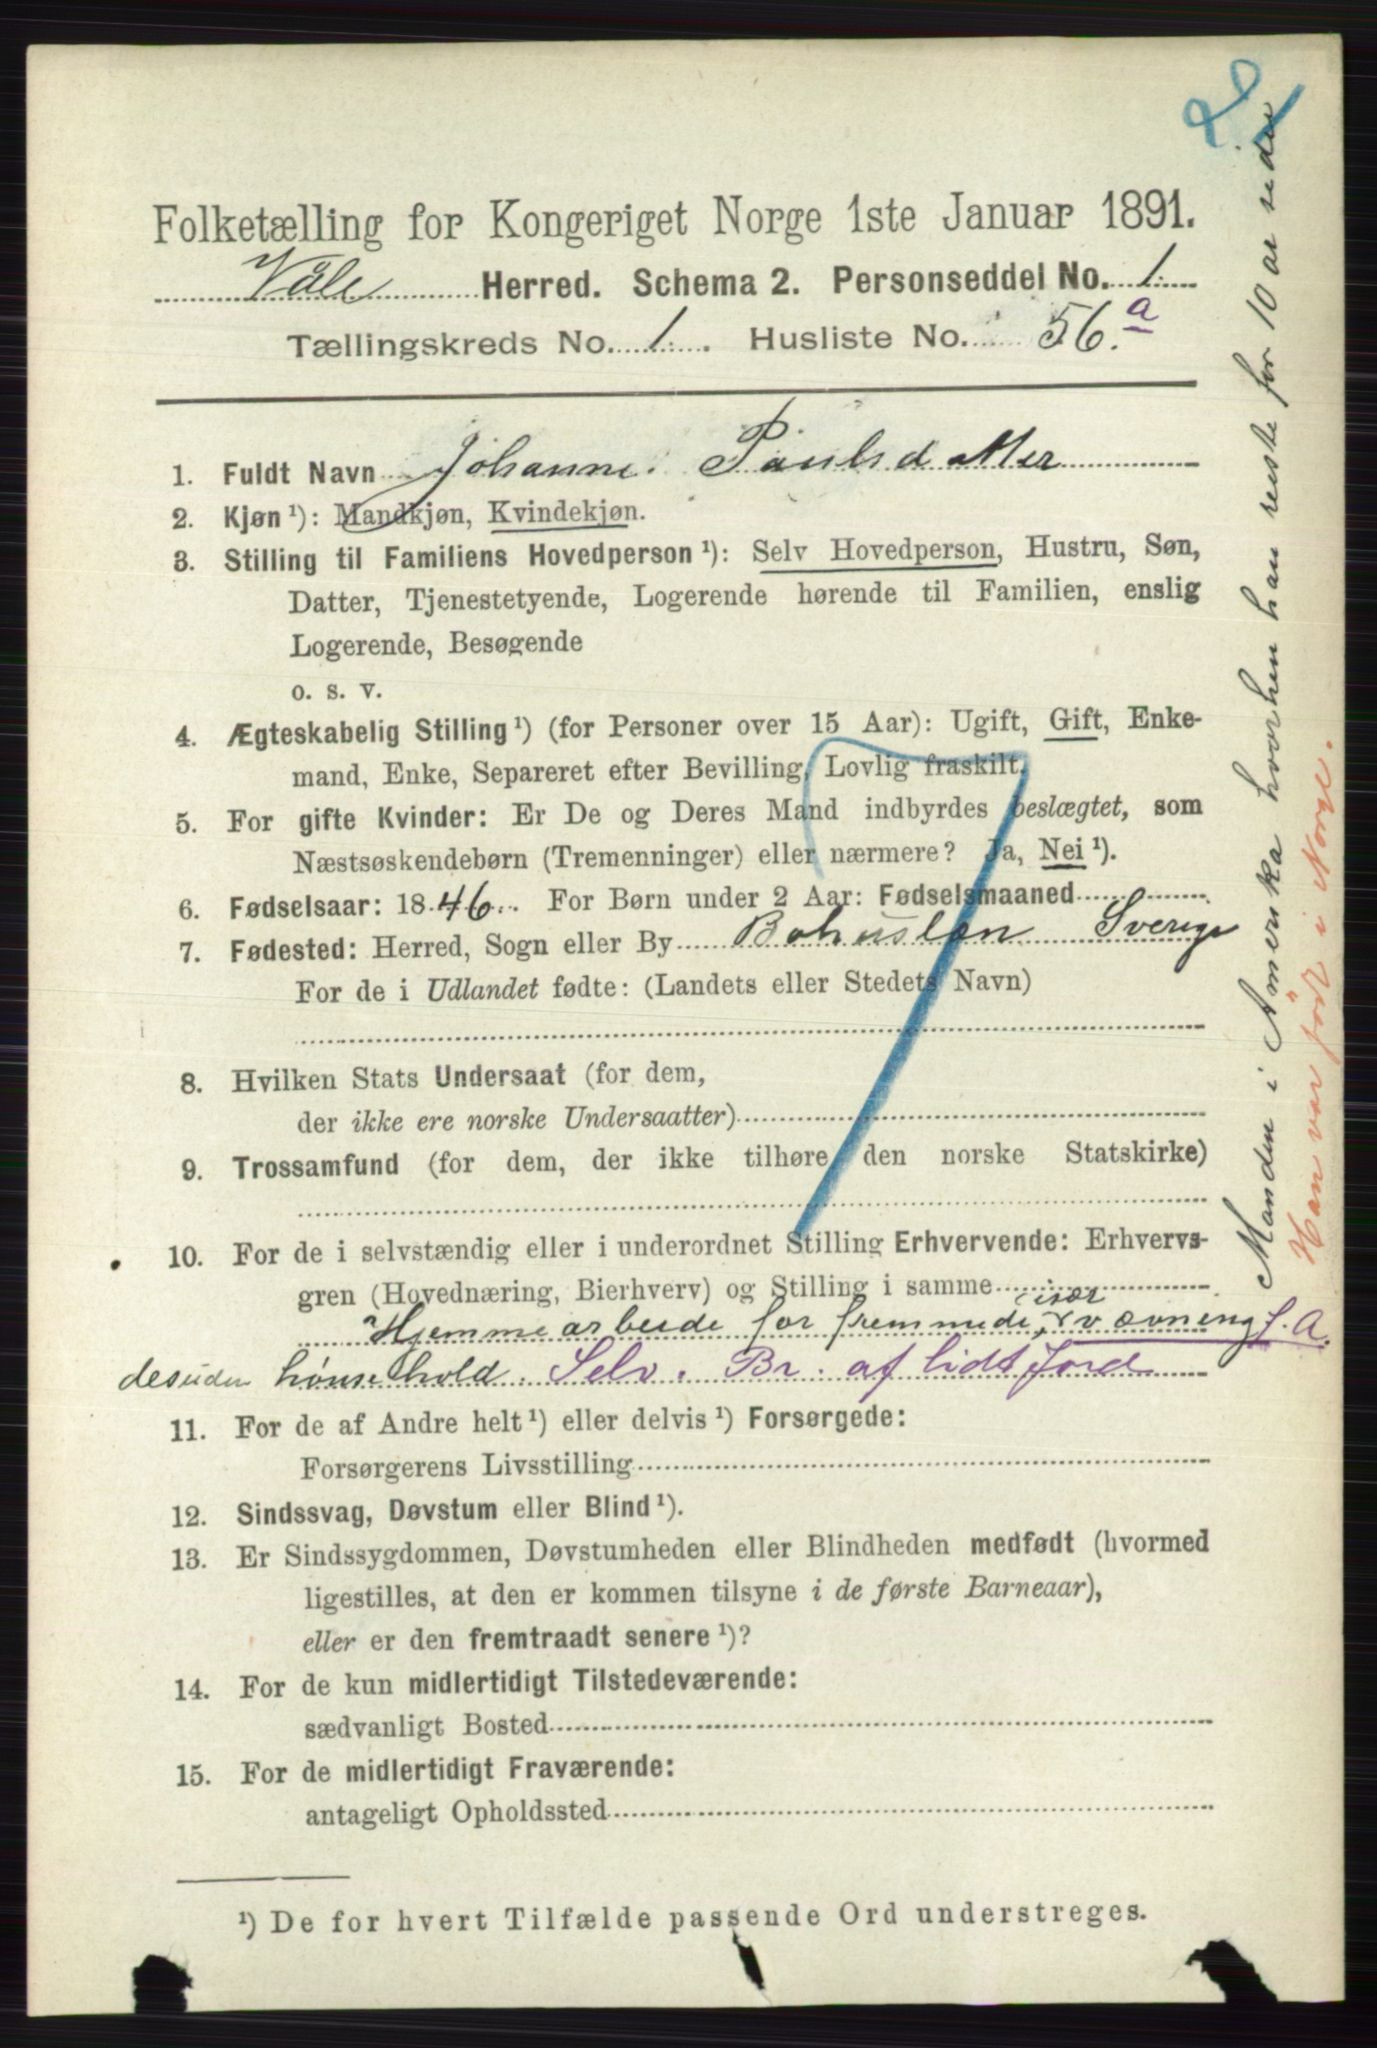 2.
Folketælling for Kongeriget Norge 1ste Januar 1891.
Våle Herred. Schema 2. Personseddel No. 1.
Tællingskreds No. 1. Husliste No. 56.a
1. Fuldt Navn Johanne Paulsdatter
2. Kjøn¹): Mandkjøn, Kvindekjøn.
3. Stilling til Familiens Hovedperson¹): Selv Hovedperson, Hustru, Søn,
Datter, Tjenestetyende, Logerende hørende til Familien, enslig
Logerende, Besøgende
o. s. v.
4. Ægteskabelig Stilling¹) (for Personer over 15 Aar): Ugift, Gift, Enke-
mand, Enke, Separeret efter Bevilling, Lovlig fraskilt.
5. For gifte Kvinder: Er De og Deres Mand indbyrdes beslægtet, som
Næstsøskendebørn (Tremenninger) eller nærmere? Ja, Nei¹).
6. Fødselsaar: 1846. For Børn under 2 Aar: Fødselsmaaned
7. Fødested: Herred, Sogn eller By Bohuslen Sverige
For de i Udlandet fødte: (Landets eller Stedets Navn)
8. Hvilken Stats Undersaat (for dem,
der ikke ere norske Undersaatter)
9. Trossamfund (for dem, der ikke tilhøre den norske Statskirke)
10. For de i selvstændig eller i underordnet Stilling Erhvervende: Erhvervs-
gren (Hovednæring, Bierhverv) og Stilling i samme
Hjemmearbeide for fremmede, især vævning f. A.
desuden hønsehold. Selv. Br. af lidt Jord
11. For de af Andre helt¹) eller delvis¹) Forsørgede:
Forsørgerens Livsstilling
12. Sindssvag, Døvstum eller Blind¹).
13. Er Sindssygdommen, Døvstumheden eller Blindheden medfødt (hvormed
ligestilles, at den er kommen tilsyne i de første Barneaar),
eller er den fremtraadt senere¹)?
14. For de kun midlertidigt Tilstedeværende:
sædvanligt Bosted
15. For de midlertidigt Fraværende:
antageligt Opholdssted
¹) De for hvert Tilfælde passende Ord understreges.
Manden i Amerika hvorhen han reiste for 10 år siden
Han var født i Norge.